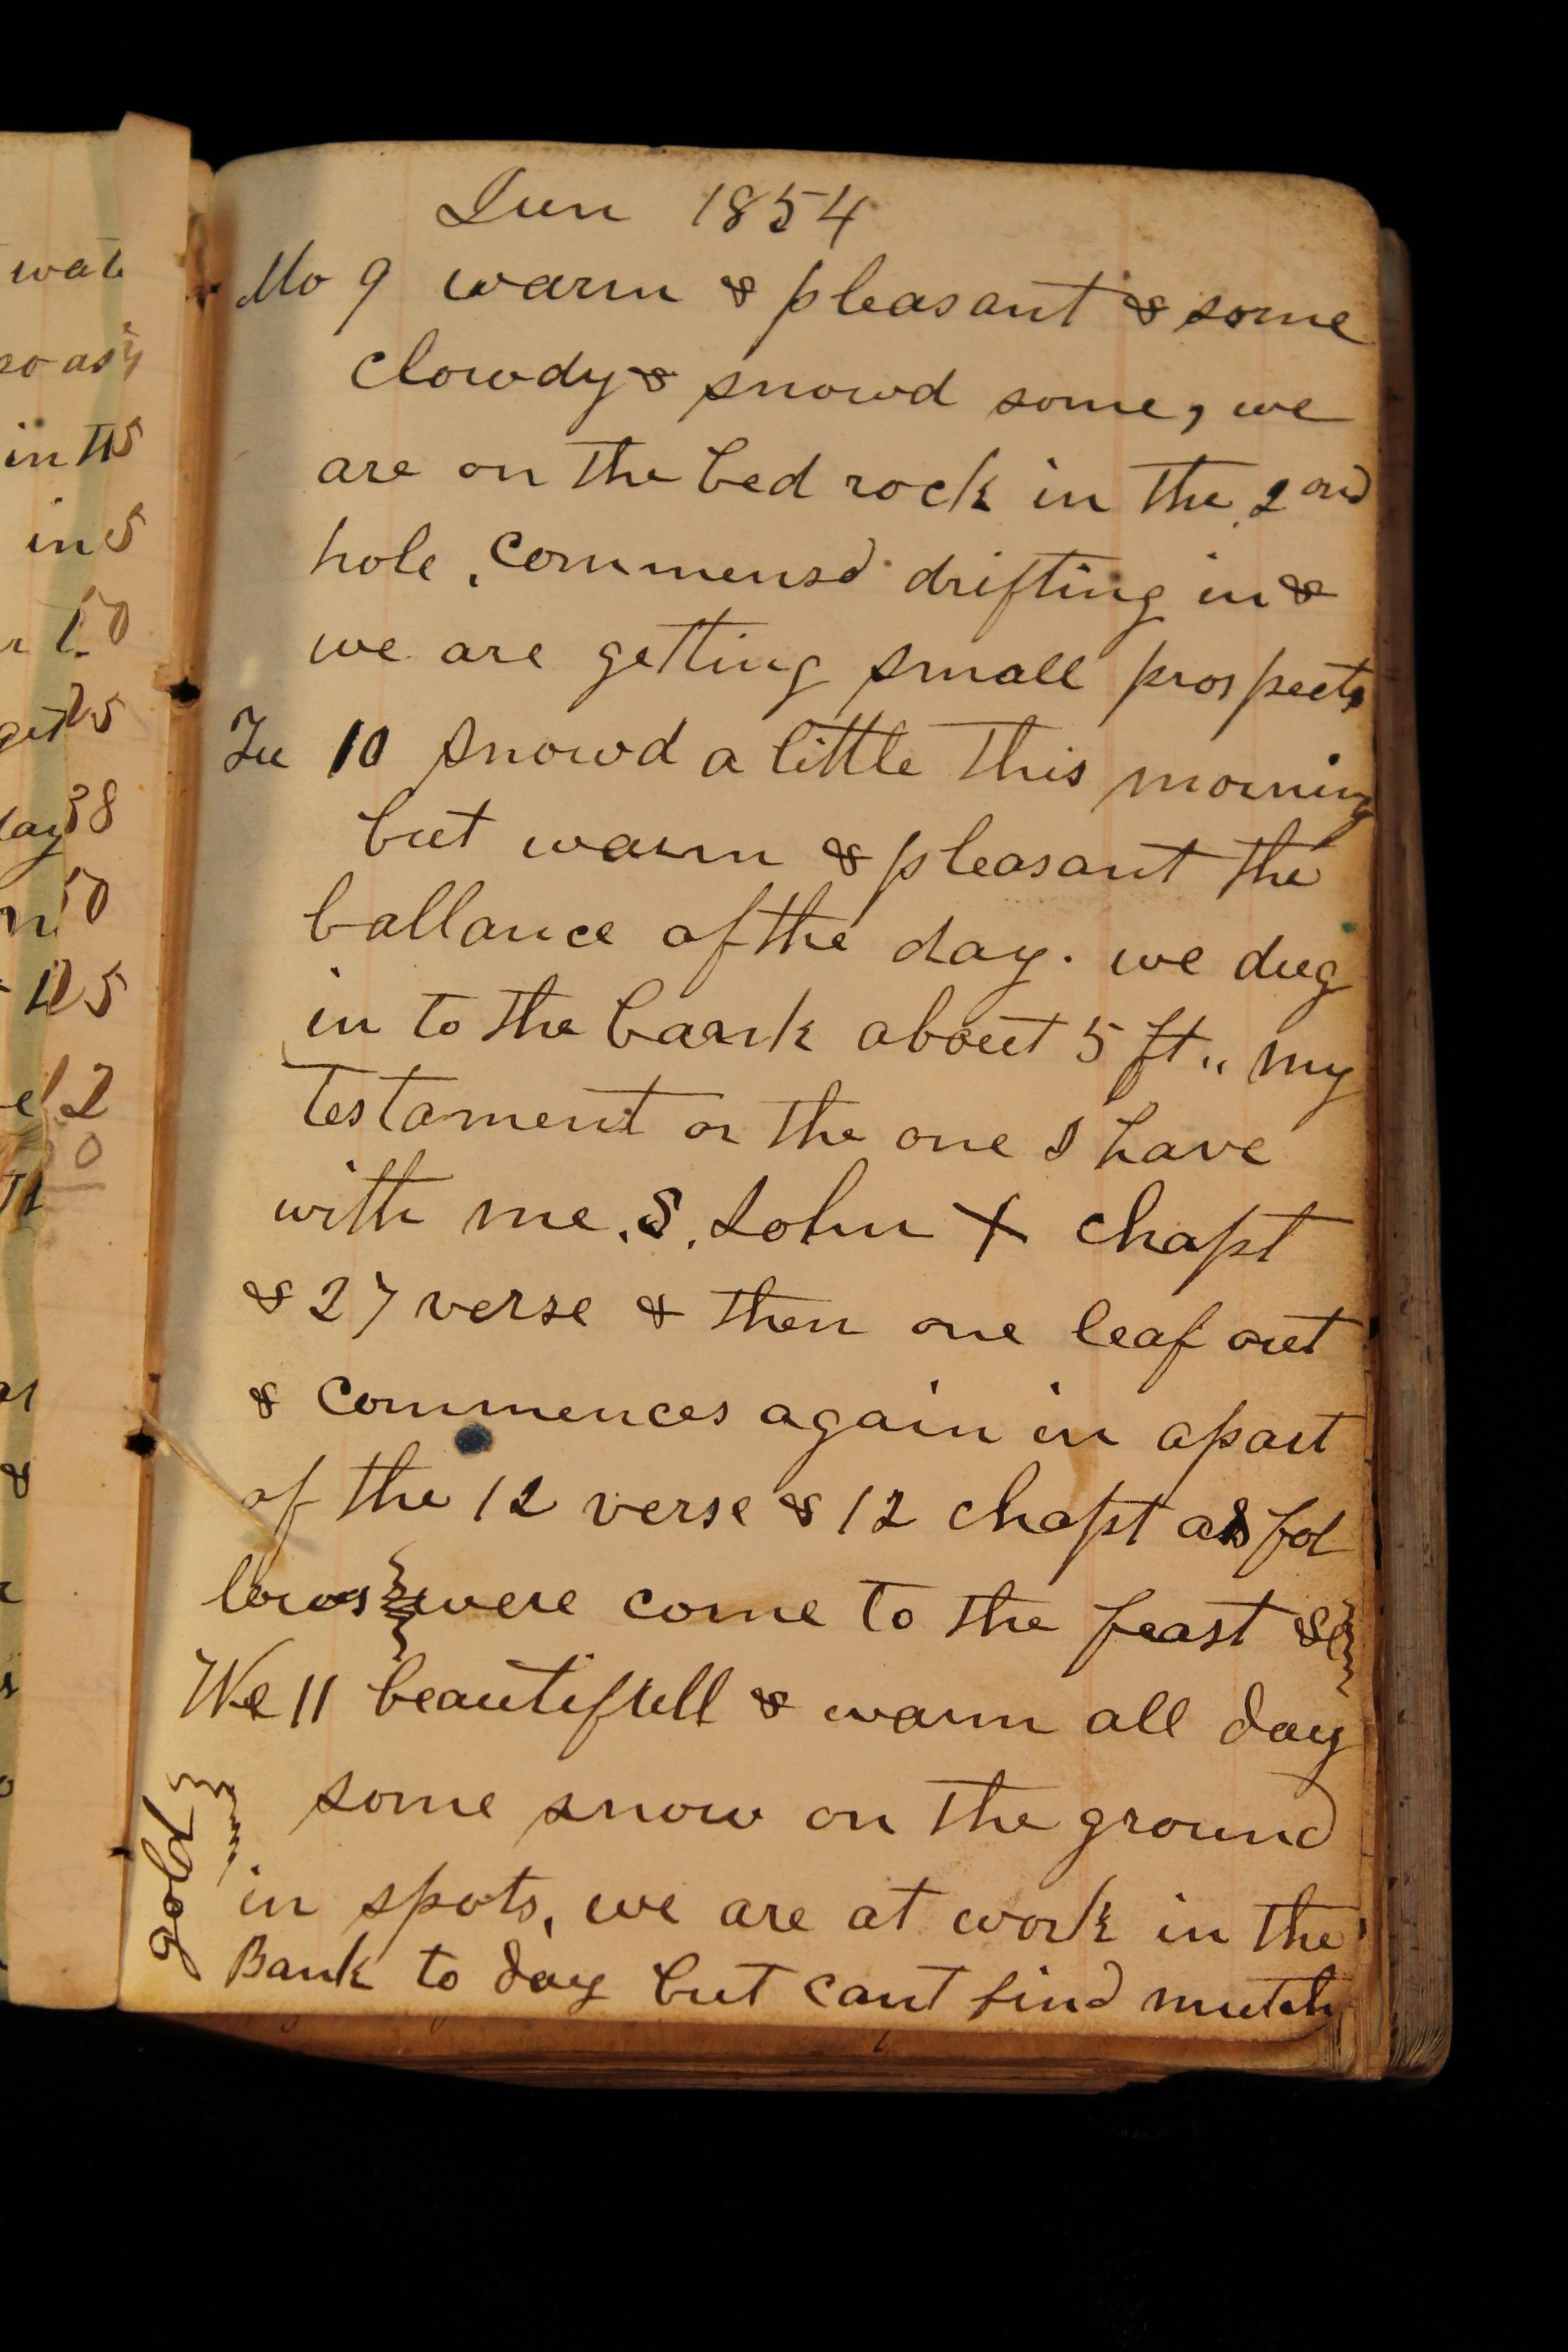 Jun 1854
Mo 9 warm & pleasant & some
clowdy & snowd some, we
are on the bed rock in the 2ond
hole. commensd drifting in &
we are getting small prospects
Tu 10 snowd a little this morning
but warm & pleasant the
ballance of the day. we dug
in to the baank about 5 ft.. my
testament or the one I have
with me. S. John X chapt
& 27 verse & then one leaf out
& commences again in apart
of the 12 verse & 12 chapt as fol
lows were come to the feast &c
We 11 beautifull & warm all day
some snow on the ground
in spots, we are at work in the
Bank to day but cant find mutch
gold
wate
so as
in th
in 5
50
get 25
day 38
50
25
12
0
&